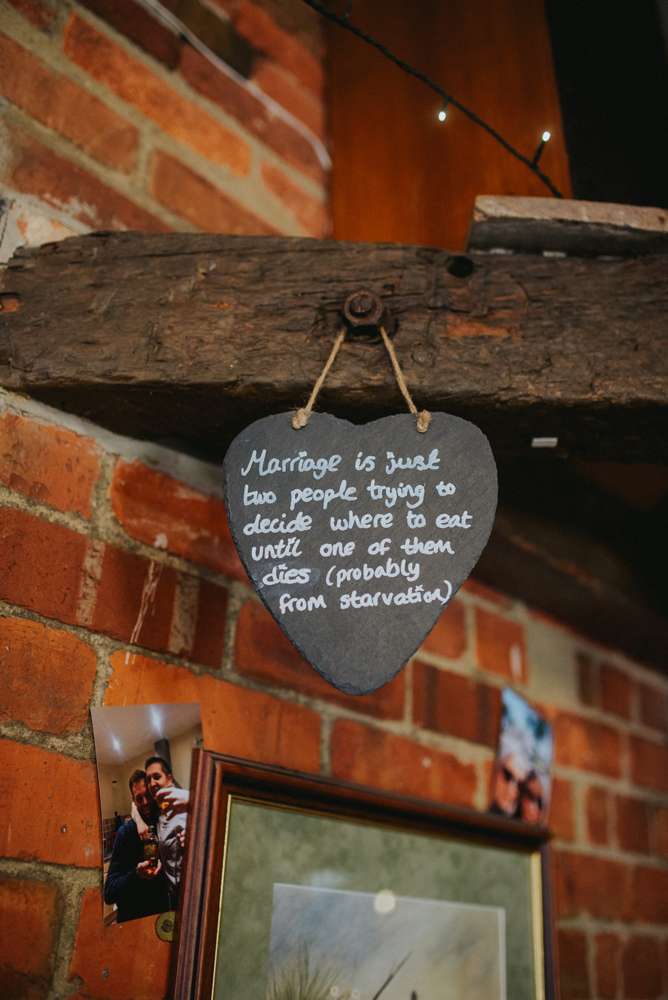 Marriage is just
two people trying to
decide where to eat
until one of them
dies (probably
from starvation)